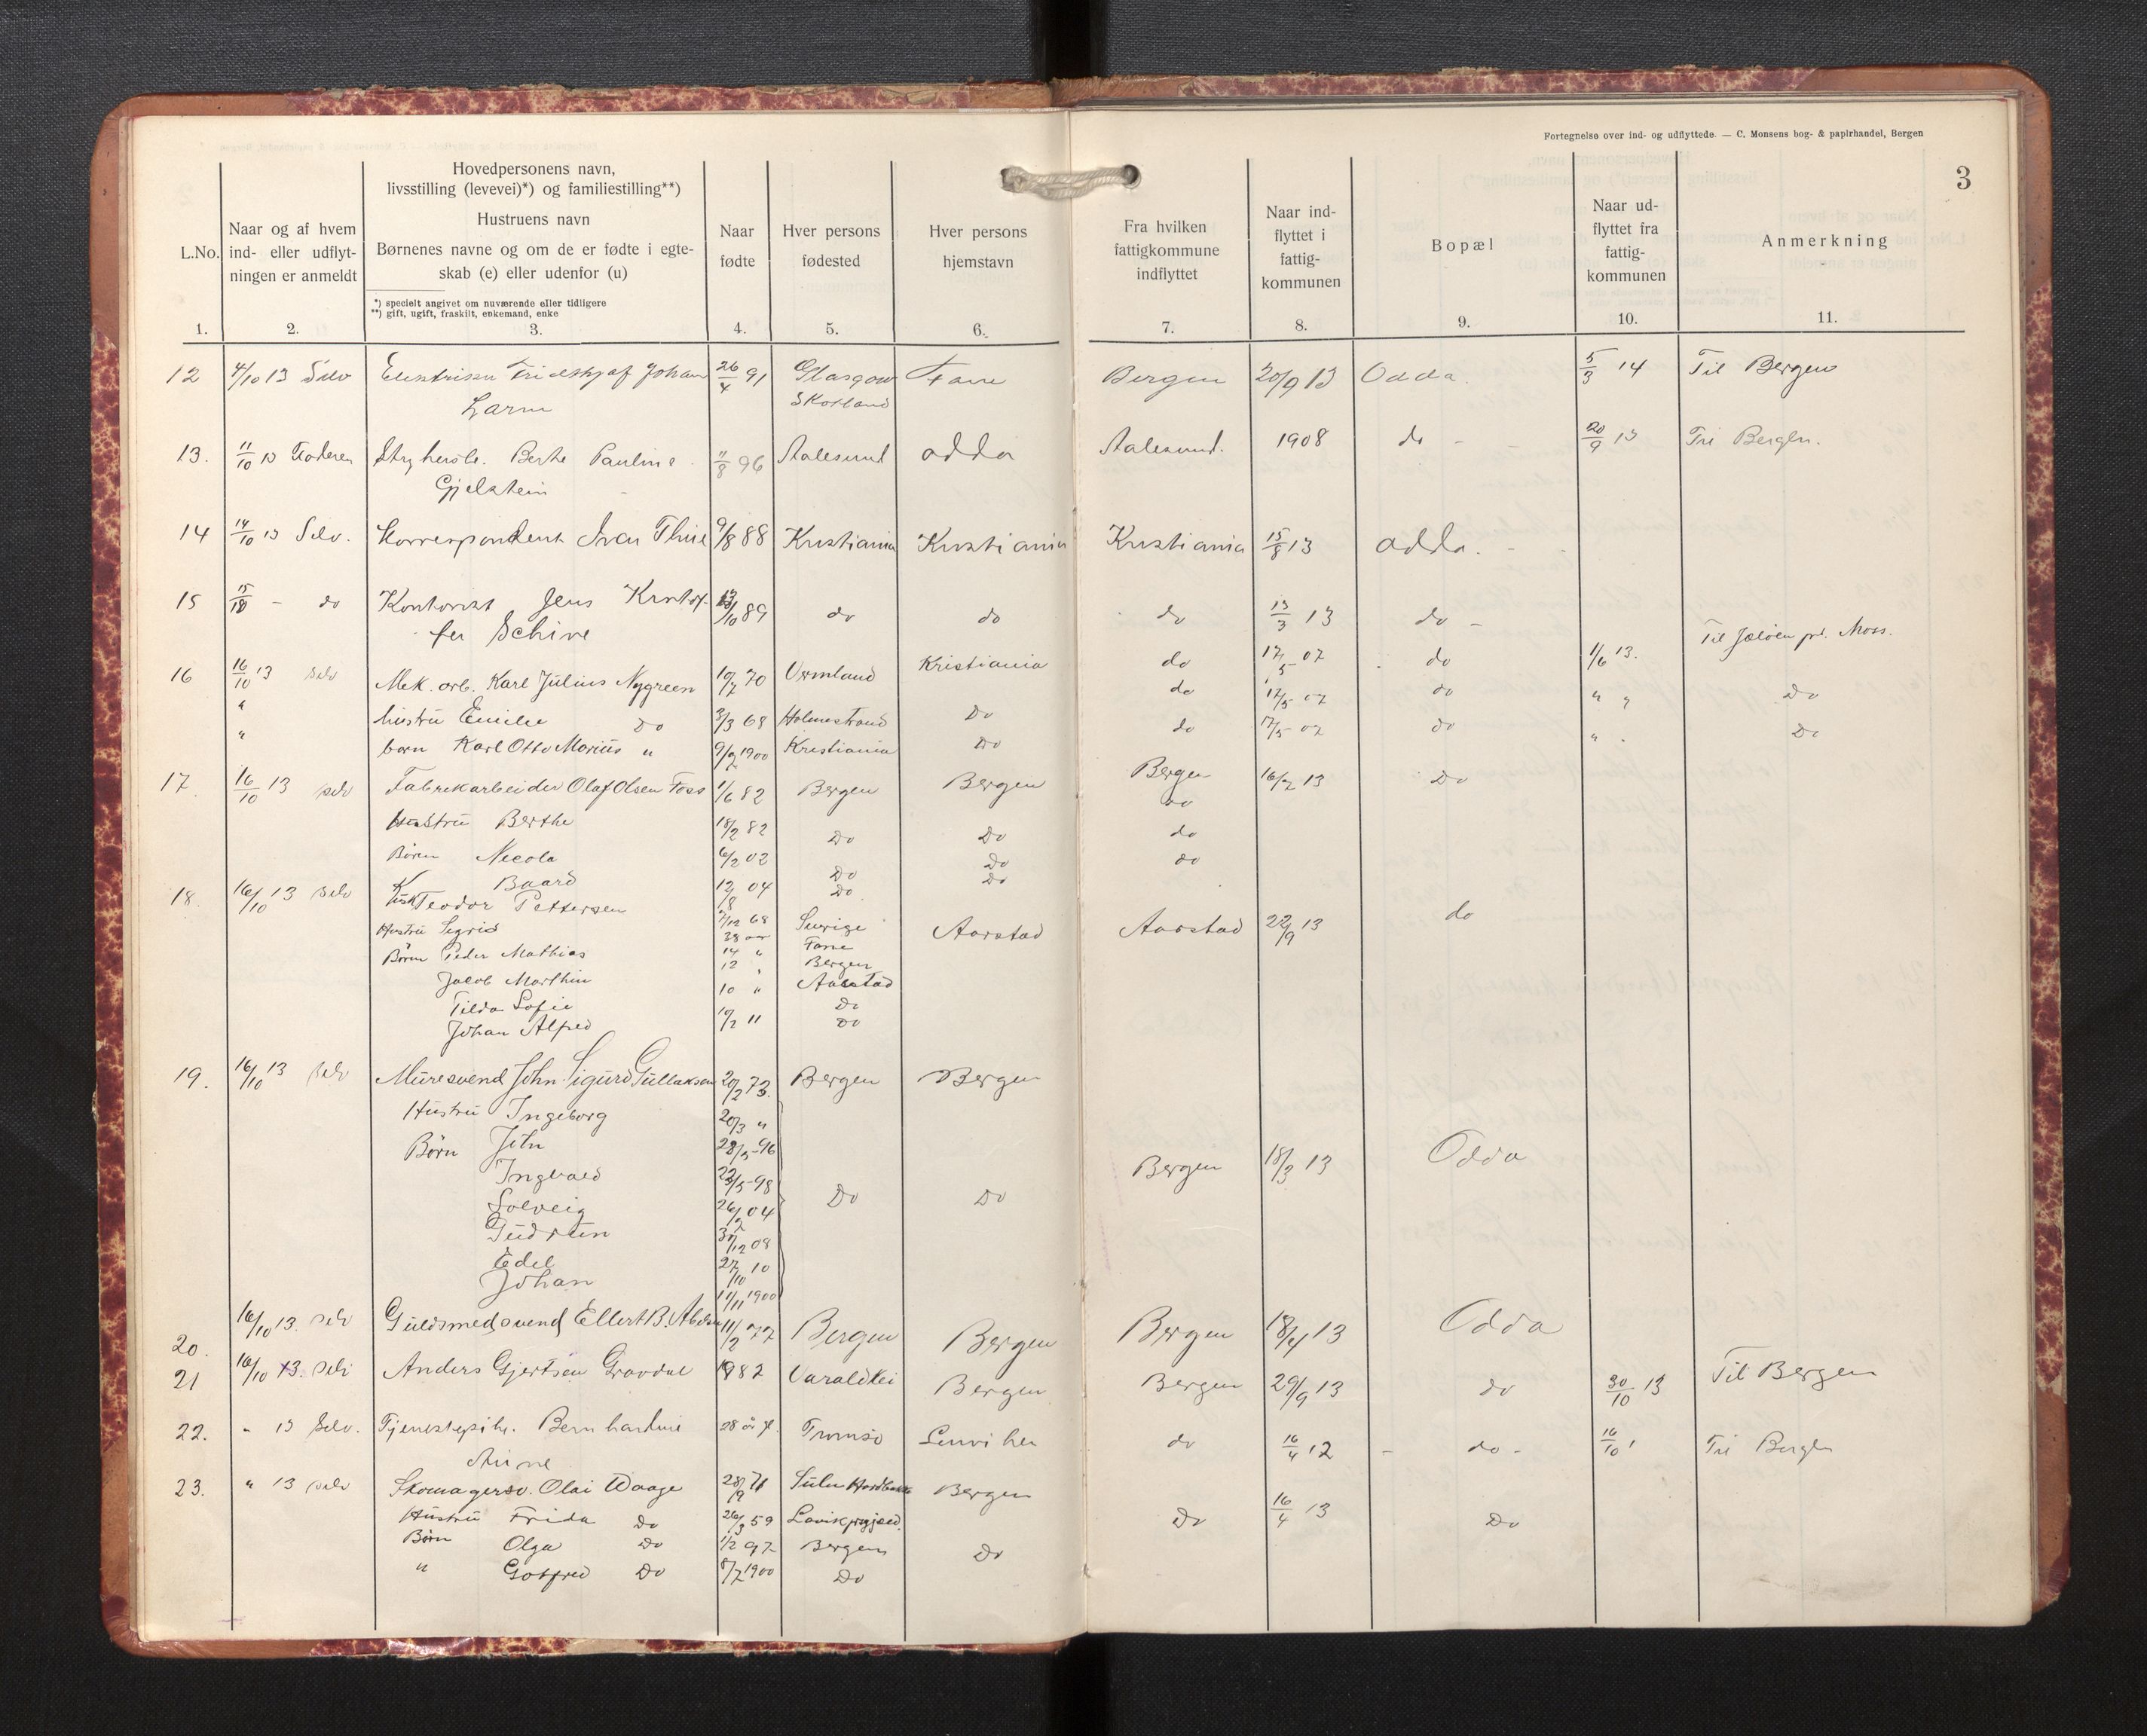 Fortegnelse over ind- og udflyttede. — C. Monsens bog- & papirhandel, Bergen
3
L.No.
1.
Naar og af hvem
ind- eller udflyt-
ningen er anmeldt
2.
Hovedpersonens navn,
livsstilling (levevei)*) og familiestilling**)
Hustruens navn
Børnenes navne og om de er fødte i egte-
skab (e) eller udenfor (u)
*) specielt angivet om nuværende eller tidligere
**) gift, ugift, fraskilt, enkemand, enke
3.
Naar
fødte
4.
Hver persons
fødested
5.
Hver persons
hjemstavn
6.
Fra hvilken
fattigkommune
indflyttet
7.
Naar ind-
flyttet i
fattig-
kommunen
8.
Bopæl
9.
Naar ud-
flyttet fra
fattig-
kommunen
10.
Anmerkning
11.
12 4/10 13 Selv Johan 26/4 91 Glasgow Fane Bergen 20/9 13 Odda. 5/3 14 Til Bergen
Skotland
13. 11/10 13 Faderen Berthe Pauline 11/8 96 Aalesund Odda Aalesund. 1908 do 20/9 13 Til Bergen.
Gjelstein
14 14/10 13 Selv. Korrespondent Ivar 9/8 88 Kristiania Kristiania Kristiania 15/8 13 Odda.
15 - do Kontorist Jens Kristof- 89 do do do 13/3 13 do -
fer Schive
16 16/10 13 selv Mek. arb. Karl Julius Nygreen 19/7 70 Vermland Kristiania do 17/5 07 do 1/6 13. Til Jeløen pr. Moss.
" hustru Emilie Do 3/3 68 Holmestrand Do do 17/5 07 do " " Do
" barn Karl Otto Marius " 9/2 1900 Kristiania Do do 17/5 07 do " Do
17. 16/10 13 selv Fabrikarbeider Olaf Olsen Foss 1/6 82 Bergen Bergen Bergen 16/2 13 Do
Hustru Berthe 18/2 82 Do Do do
Børn Necola 6/2 02 Do Do do
Baard 12/8 04 Do Do do
18. 16/10 13 selv Teodor Pettersen 68 Sverige Aarstad Aarstad 22/9 13 do
Hustru Sigrid 38 aar Fane
Børn Peder Mathias 14 " Bergen
Jacob Marthin 12 " Aarstad
Tilda Sofie 10 " Do
Johan Alfred 19/2 11 Do
19. 16/10 13 selv Muresvend John Sigurd Gullaksen 20/2 73. Bergen Bergen
Hustru Ingeborg 20/3 "
Børn John 28/5-96 Bergen 18/3 13 Odda
Ingvald 22/5-98
Solveig 26/2 04 Do Do
Gudrun 31/12 08
Edel 27/10 10
Johan 11/11 1900
20. 16/10 13. selv Guldsmedsvend Ellert B. 11/2 77 Bergen Bergen Bergen 18/4 13 Odda
21 16/10 13. selv Anders Gjertsen Gravdal 1882 Varaldsøi Bergen Bergen 29/9 13 do 30/10 13 Til Bergen
22. " 13 Selv. Tjenestepike. Bernhardine 28 år Tromsø Lenvi do 16/4 12 - do - 16/10 Til Bergen
23. " 13 selv Skomagersv. Olai Waage 28/9 71 Bergen Do 16/4 13 Do
Hustru Frida Do 26/3 59
Børn Olga Do 1/2 97 Bergen Do
" Gotfred Do 8/7 1900 Do